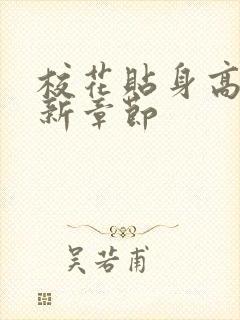 校花貼身高
新章節
吴若甫